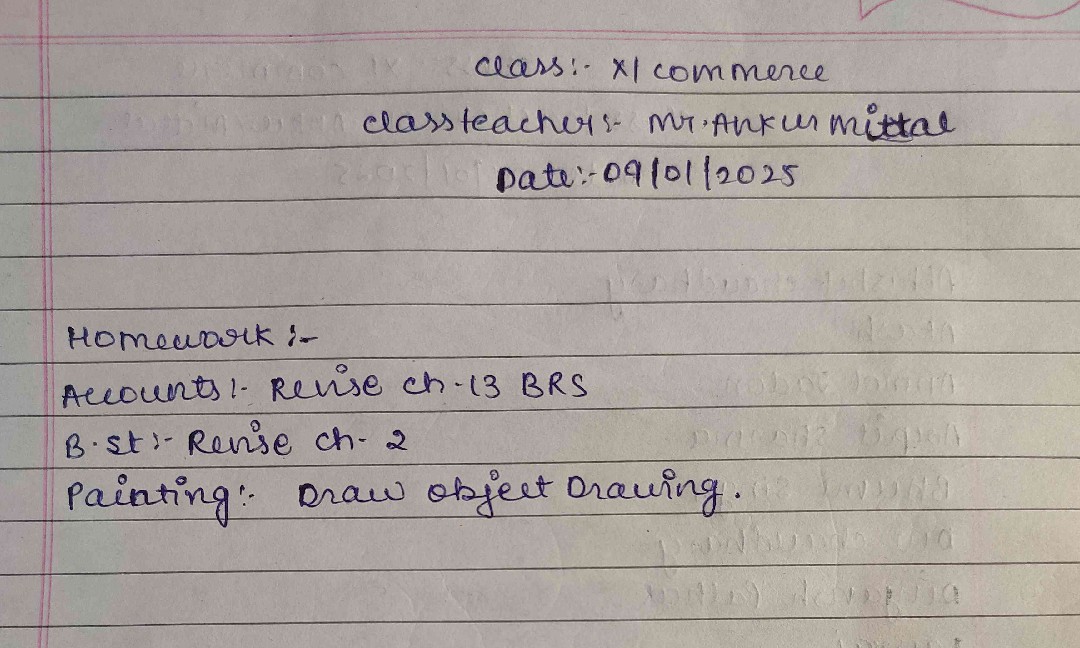 class:- XI commerce
classteacher:- Mr. Ankur Mittal
Date:- 09/01/2025
Homework :-
Accounts :- Revise ch-13 BRS
B.st :- Revise ch- 2
Painting :- Draw object Drawing.